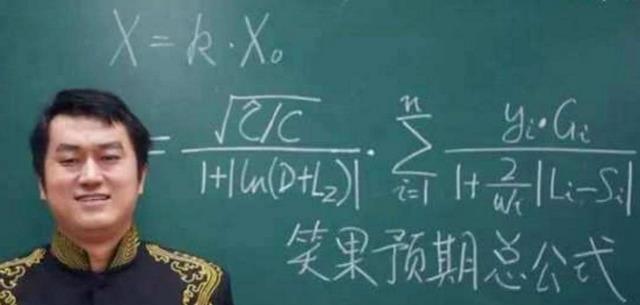 X = k · X₀
= √(2/C) / (1+|ln(D+L₂)|) · ∑ᵢ₌₁ⁿ yᵢ·Gᵢ / (1+ 2/Wᵢ |Lᵢ−Sᵢ|)
笑果预期总公式